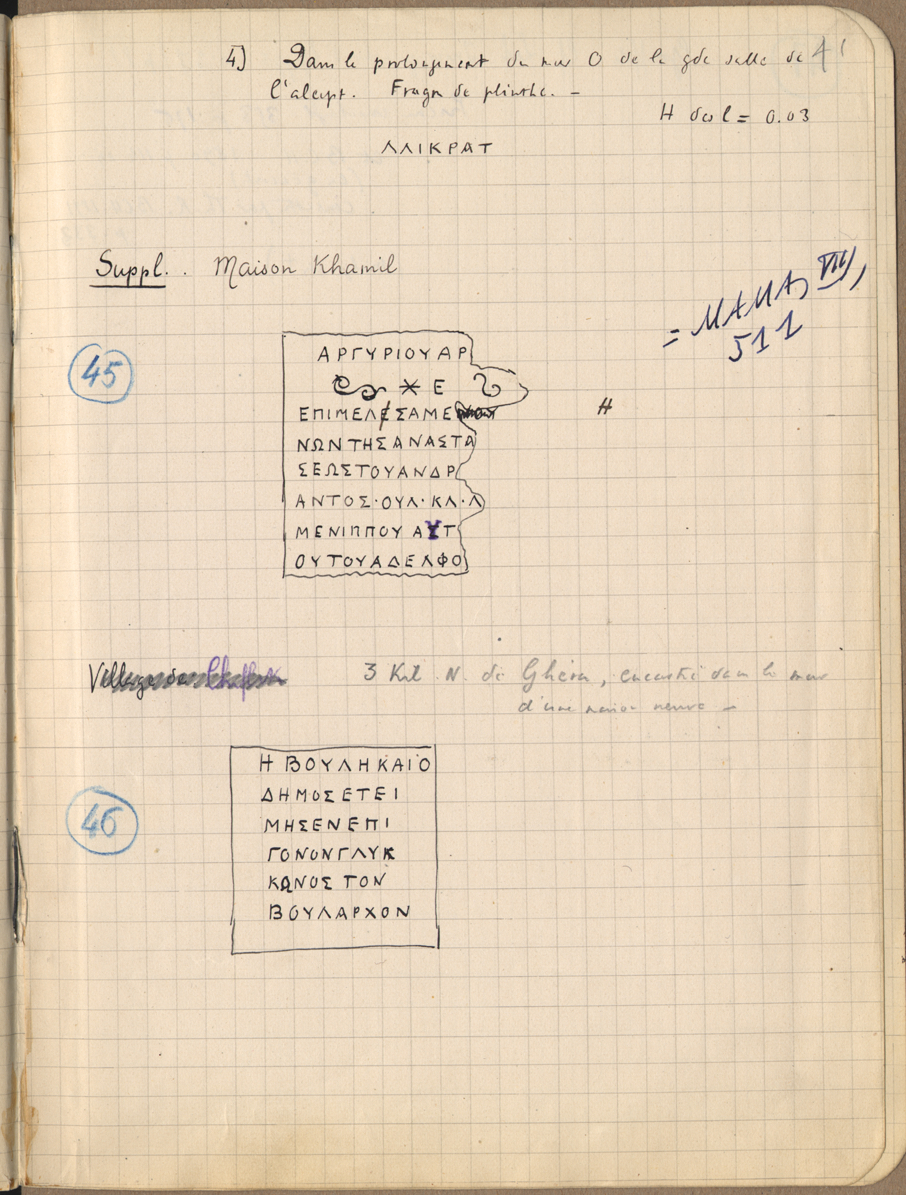 4) Dans le prolongement du mur O de la gde salle de
41
l'aleipt. Fragm de plinthe. –
H des l = 0.03
ΛΛΙΚΡΑΤ
Suppl. . Maison Khamil
= MAMA, VII,
511
45
ΑΡΓΥΡΙΟΥΑΡ
Ε
ΕΠΙΜΕΛΕΣΑΜΕ
Η
ΝΩΝΤΗΣΑΝΑΣΤΑ
ΣΕΩΣΤΟΥΑΝΔΡ
ΑΝΤΟΣ·ΟΥΛ·ΚΛ·Λ
ΜΕΝΙΠΠΟΥΑΥΤ
ΟΥΤΟΥΑΔΕΛΦΟ
Village de
3 Kil. N. de Ghéra, encastré dans le mur
d'une maison neuve –
46
Η ΒΟΥΛΗΚΑΙΟ
ΔΗΜΟΣΕΤΕΙ
ΜΗΣΕΝΕΠΙ
ΓΟΝΟΝΓΛΥΚ
ΚΩΝΟΣ ΤΟΝ
ΒΟΥΛΑΡΧΟΝ